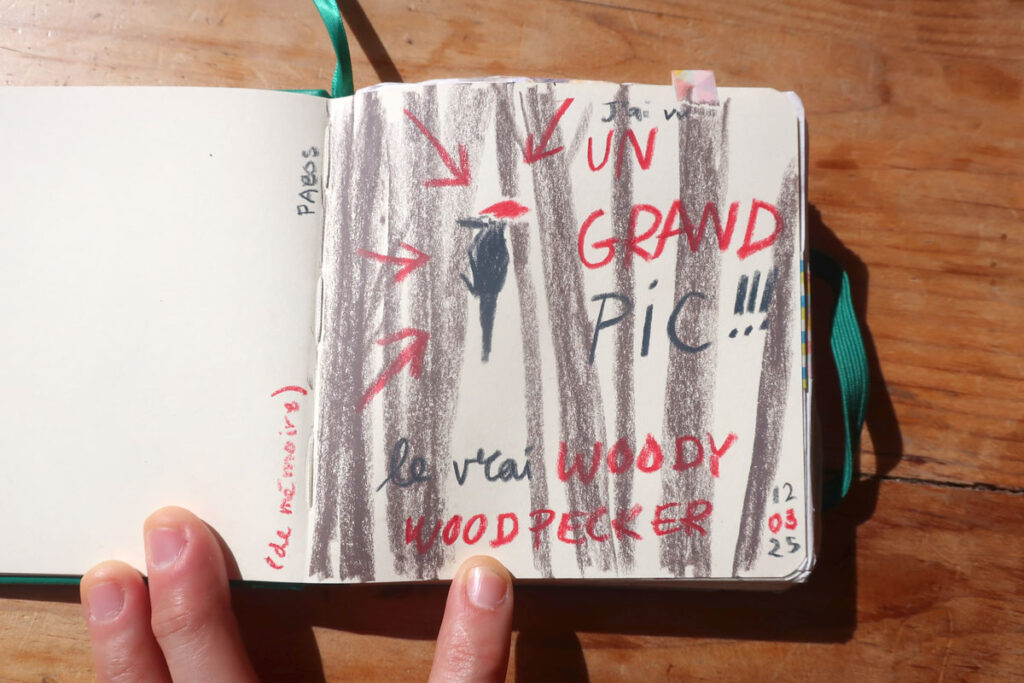 PABOS
(de mémoire)
J'ai vu
UN
GRAND
PIC!!!
le vrai WOODY
WOODPECKER
12
03
25